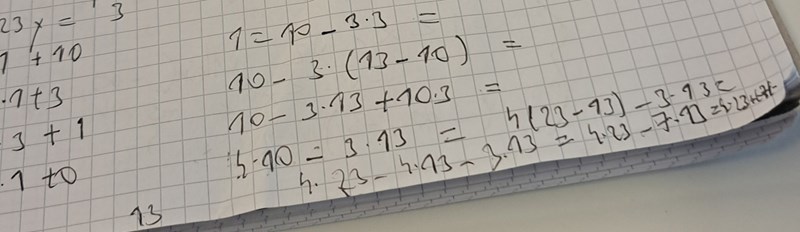 23y = 3
1 + 10
·1+3
3 + 1
·1 +0
13
1 = 10 - 3·3 =
10 - 3·(13-10) =
10 - 3·13 + 10·3 =
4·10 - 3·13 = 4(23-13) - 3·13 =
4·23 - 4·13 - 3·13 = 4·23 - 7·13 = 4·23